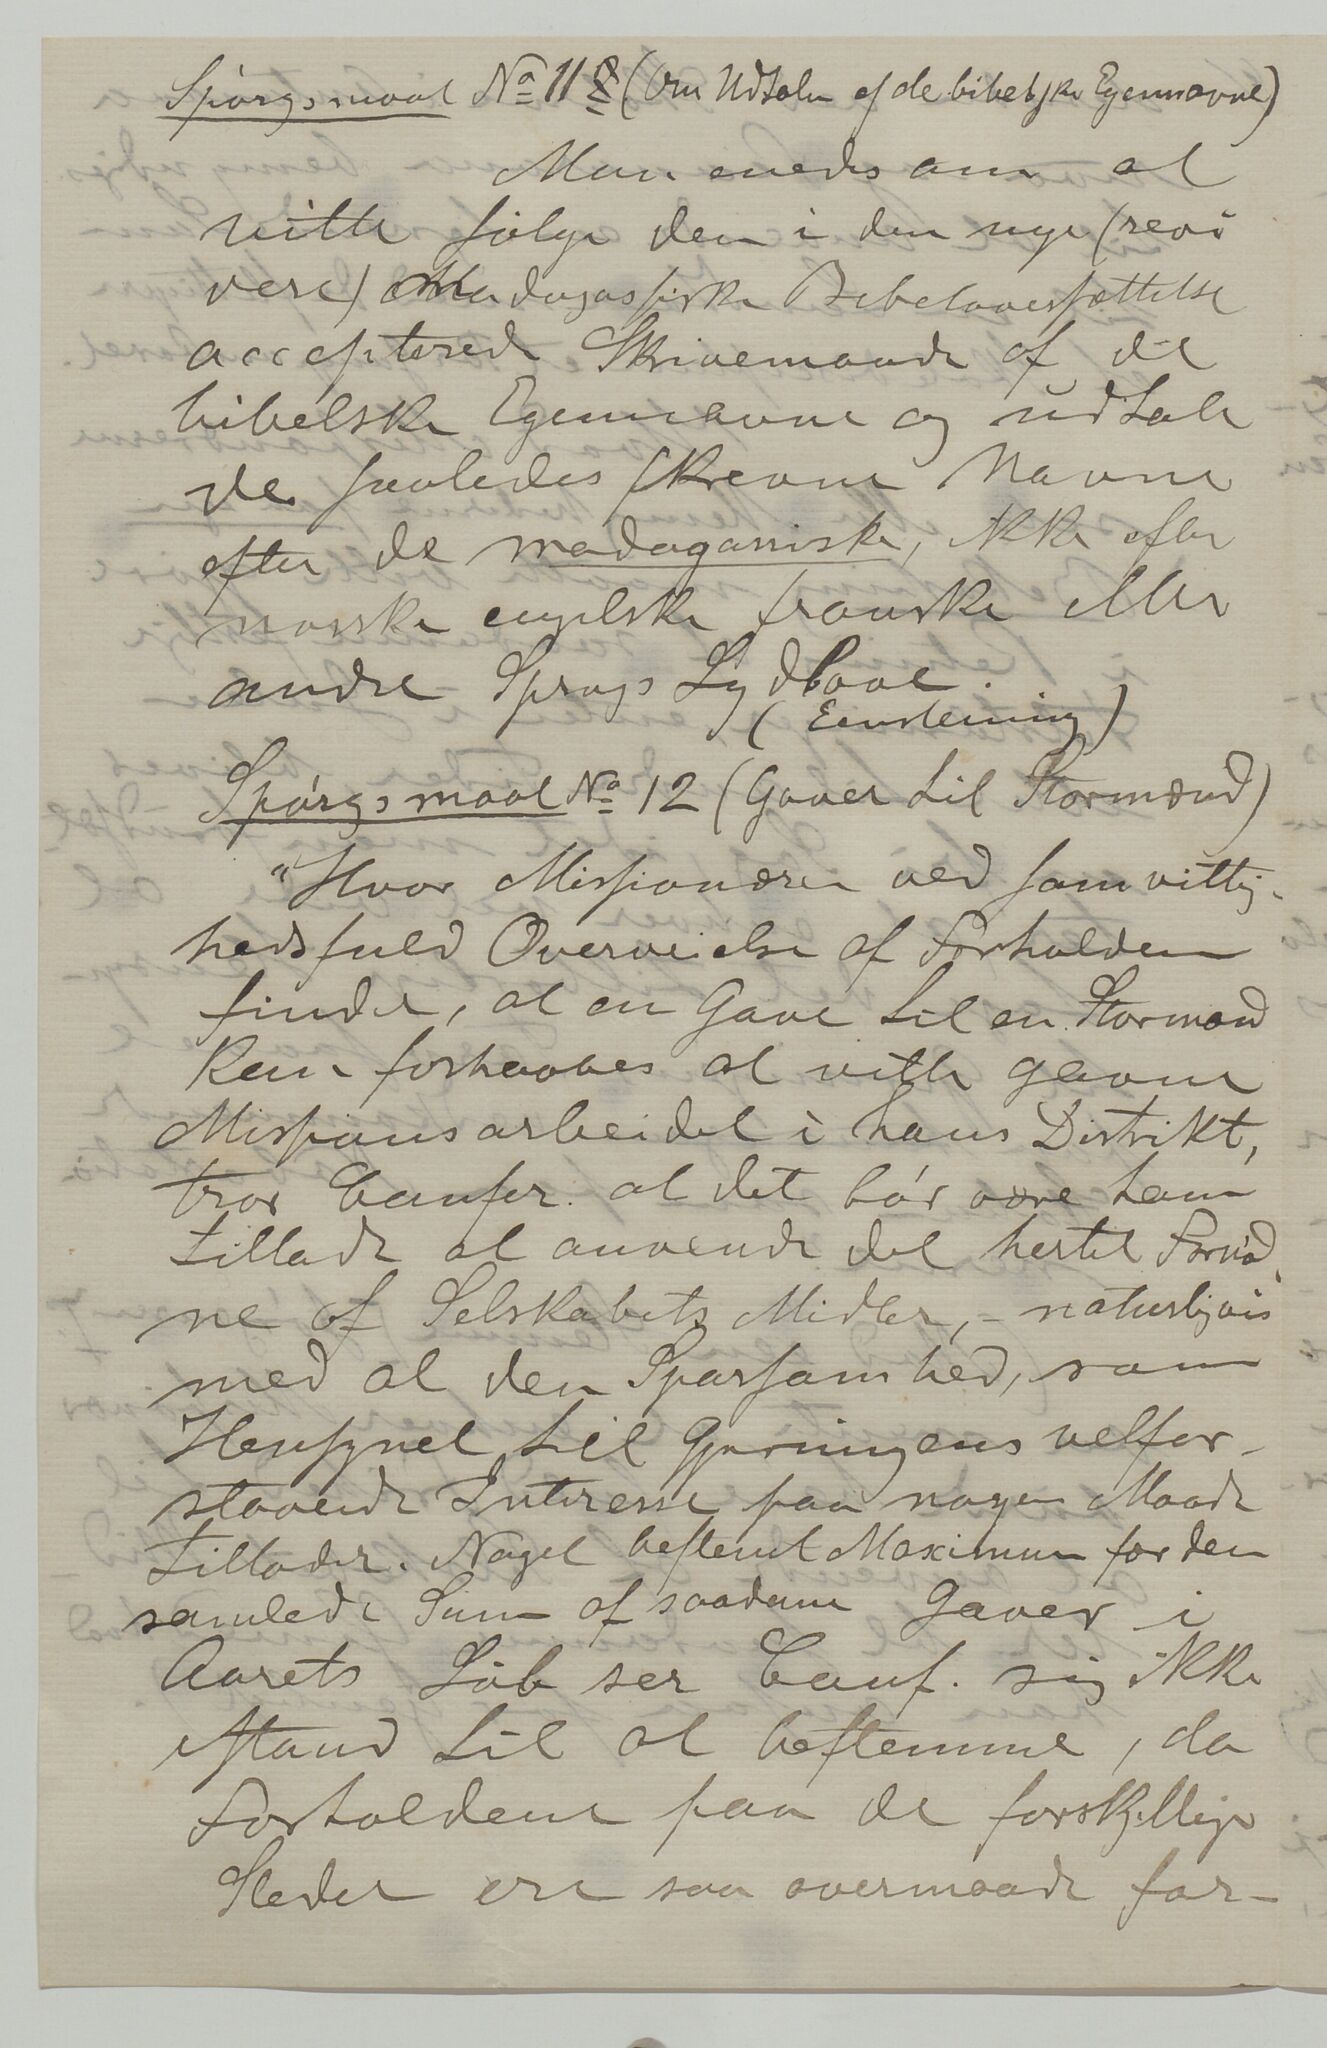 Spørgsmaal No 11 (Om Udtalen af de bibelske Egennavne)
Man enedes om at
ville følge den i den nye (revi
dere) Madagassiske Bibeloversættelse
accepterede Skrivemaade af de
bibelske Egennavne og udtale
de saaledes skrevne Navne
efter de madagassiske, ikke efter
norske engelske franske eller
andre Sprogs Lydlove.
(Eenstemmig)
Spørgsmaal No 12 (Gaver til Stormænd)
"Hvor Missionæren ved samvittig-
hedsfuld Overveielse af Forholdene
finder, at en Gave til en Stormand
kan forhaabes at ville gavne
Missionsarbeidet i hans Distrikt,
tror Confer. at det bør være ham
tilladt at anvende det hertil Fornød
ne af Selskabets Midler, – naturligvis
med al den Sparsomhed, som
Hensynet til Gjerningens velfor-
staaede Interesse paa nogen Maade
tillader. Noget bestemt Maximum for den
samlede Sum af saadanne Gaver i
Aarets Løb ser Conf. sig ikke
istand til at bestemme, da
Forholdene paa de forskjellige
Steder ere saa overmaade for-